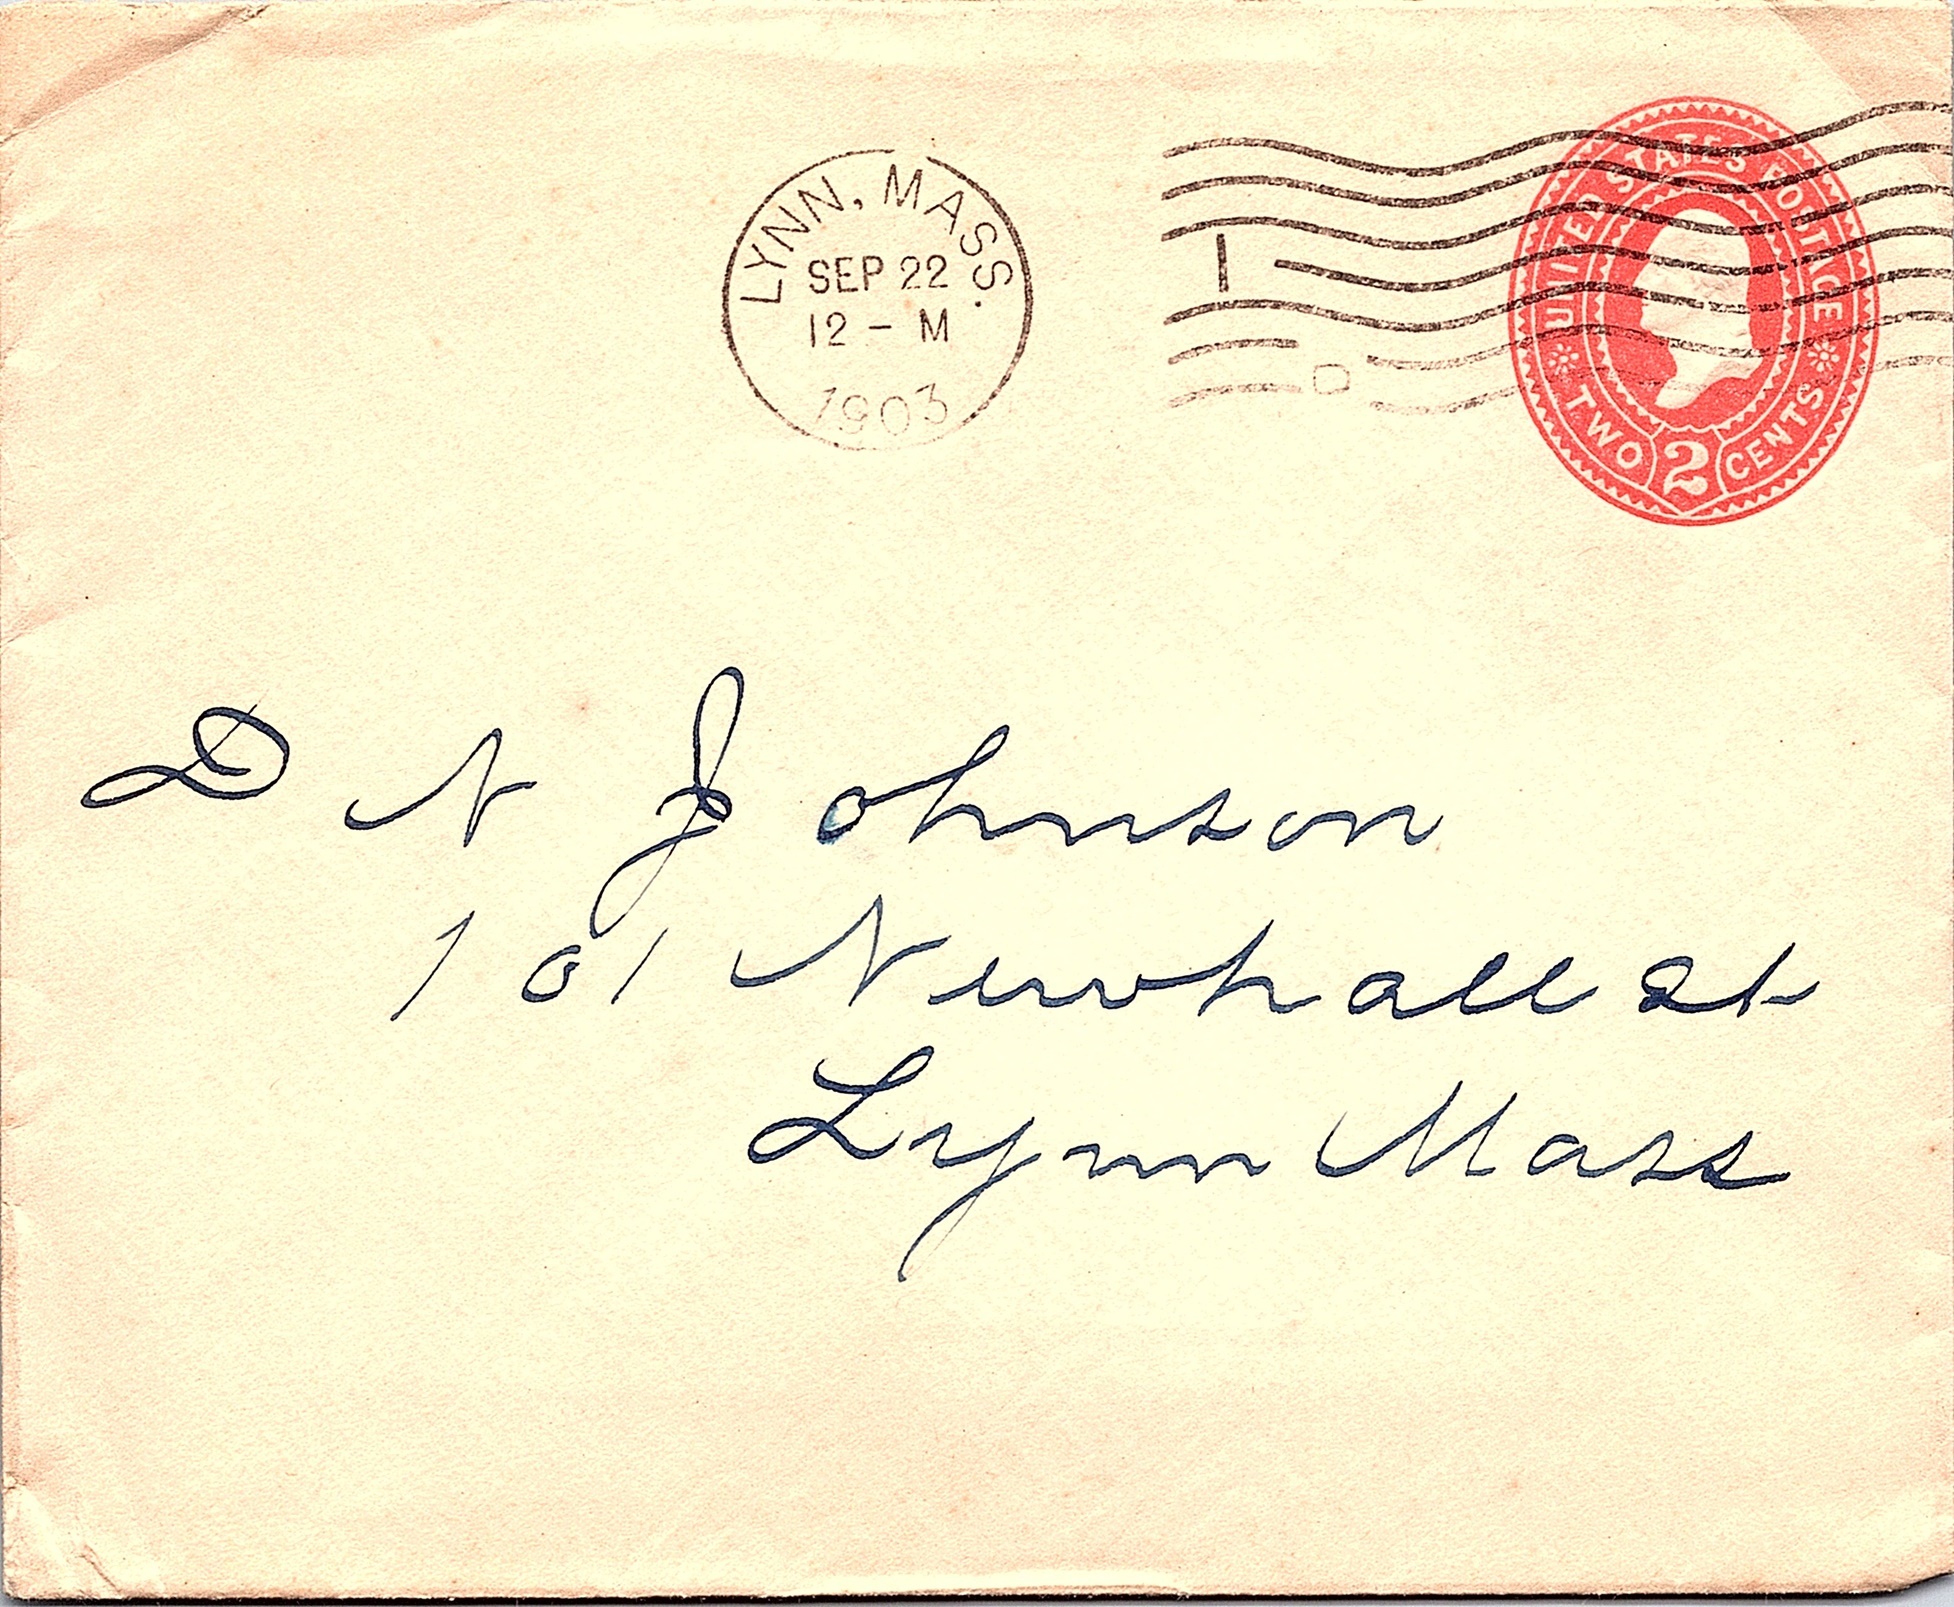 LYNN, MASS.
SEP 22
12 - M
1903
1
UNITED STATES POSTAGE
TWO 2 CENTS
D N Johnson
101 Newhall St
Lynn Mass